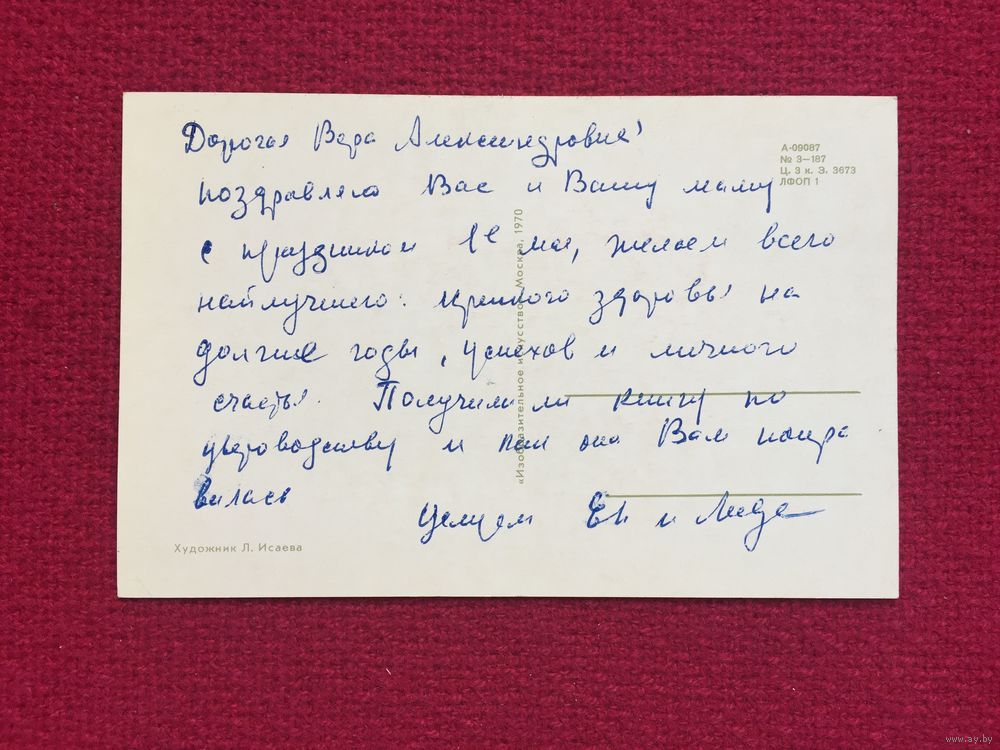 Дорогая Вера Александровна!
поздравляю Вас и Вашу маму
с праздником 1е мая, желаем всего
найлучшего: крепкого здоровья на
долгие годы, успехов и личного
счастья. Получили ли книгу по
цветоводству и как она Вам понра
вилась
Целуем Ев и Лида
А-09087
№ 3—187
Ц. 3 к. З. 3673
ЛФОП 1
«Изобразительное искусство». Москва, 1970
Художник Л. Исаева
www.ay.by